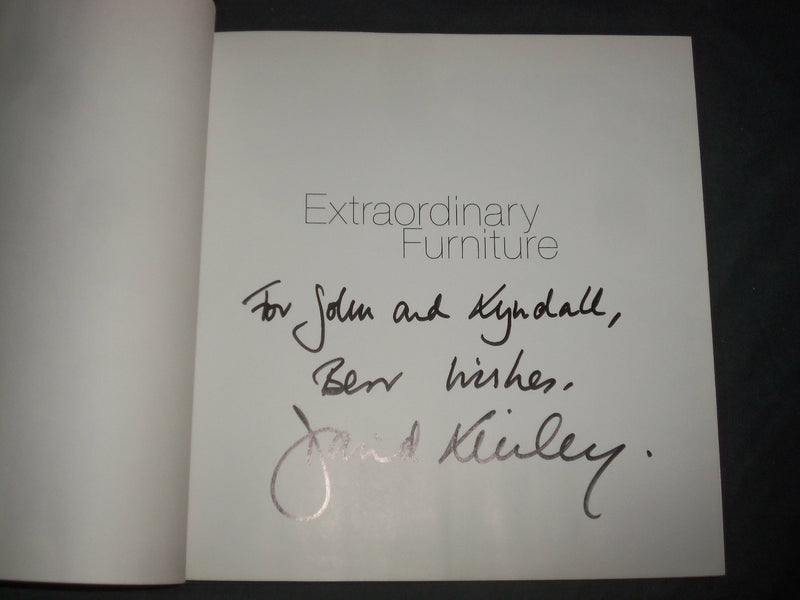 Extraordinary
Furniture
For John and Kyndall,
Best wishes.
David Linley.